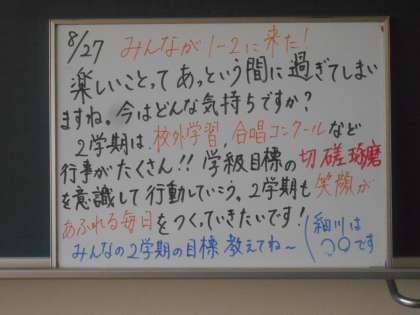 8/27 みんなが1-2に来た!
楽しいことってあっという間に過ぎてしまい
ますね。今はどんな気持ちですか?
2学期は、校外学習、合唱コンクールなど
行事がたくさん!! 学級目標の切磋琢磨
を意識して行動していこう。2学期も笑顔が
あふれる毎日をつくっていきたいです!
みんなの2学期の目標教えてね〜
細川は
○○です